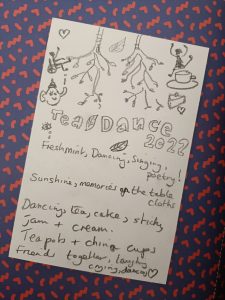 Tea Dance
2022
Freshmint, Dancing, Singing,
poetry!
Sunshine, memories on the table
cloths
Dancing, tea, cakes, sticky
Jam + cream.
Tea pots + china cups
Friends together, laughing
crying, dances